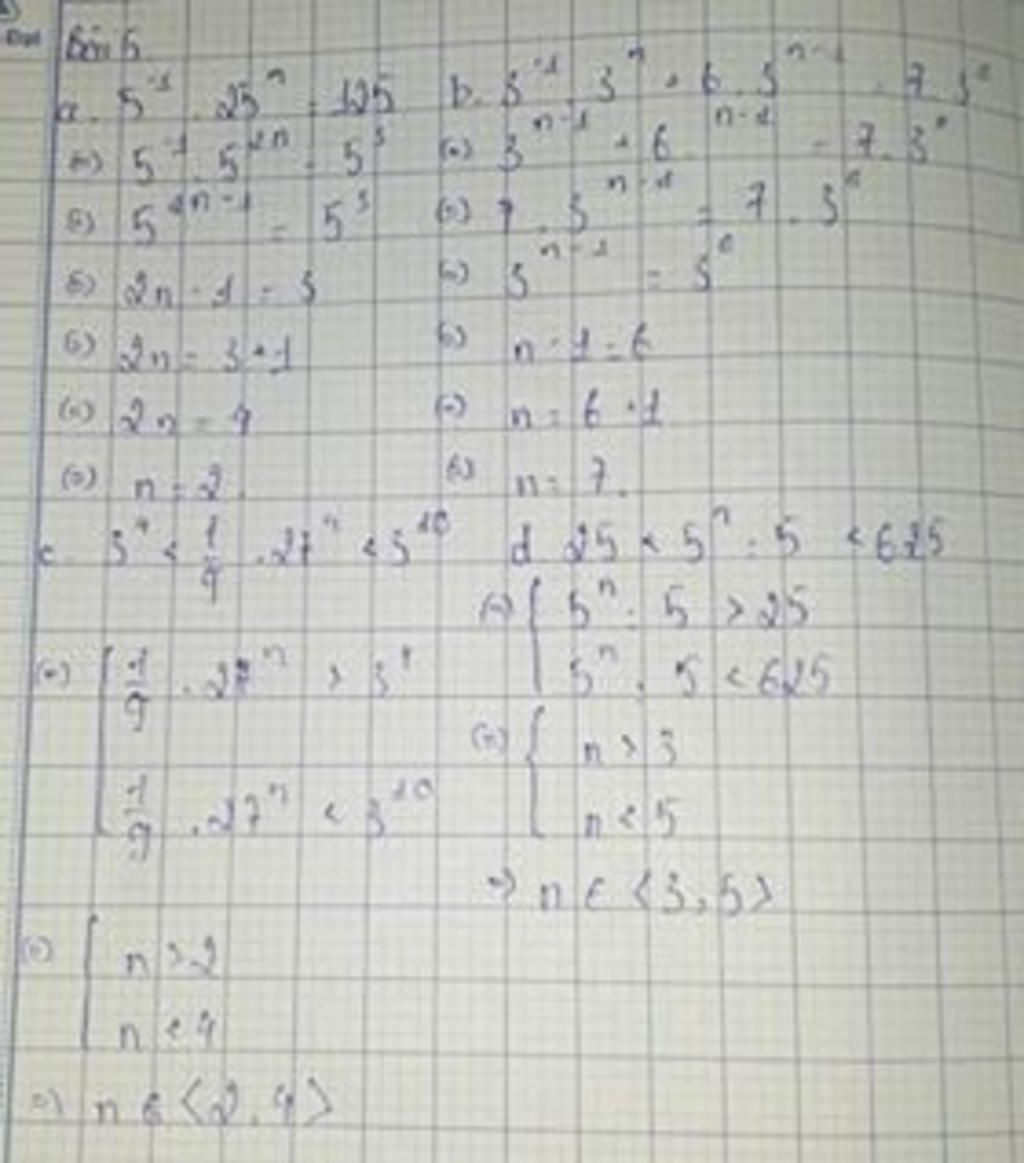 Bài 5
a. 5^-1 . 25^n = 125
(=) 5^-1 . 5^2n = 5^3
(=) 5^2n-1 = 5^3
(=) 2n - 1 = 3
(=) 2n = 3 + 1
(=) 2n = 4
(=) n = 2
b. 3^-1 . 3^n + 6 . 3^n-1 = 7 . 3^6
(=) 3^n-1 + 6 . ^n-1 = 7 . 3^6
(=) 7 . 3^n-1 = 7 . 3^6
(=) 3^n-1 = 3^6
(=) n - 1 = 6
(=) n = 6 + 1
(=) n = 7.
c. 3^4 < 1/9 . 27^n < 3^10
(=) [ 1/9 . 27^n > 3^4
1/9 . 27^n < 3^10
(=) [ n > 2
n < 4
=) n ∈ <2, 4>
d 25 < 5^n : 5 < 625
(=) { 5^n : 5 > 25
5^n : 5 < 625
(=) { n > 3
n < 5
=) n ∈ <3, 5>